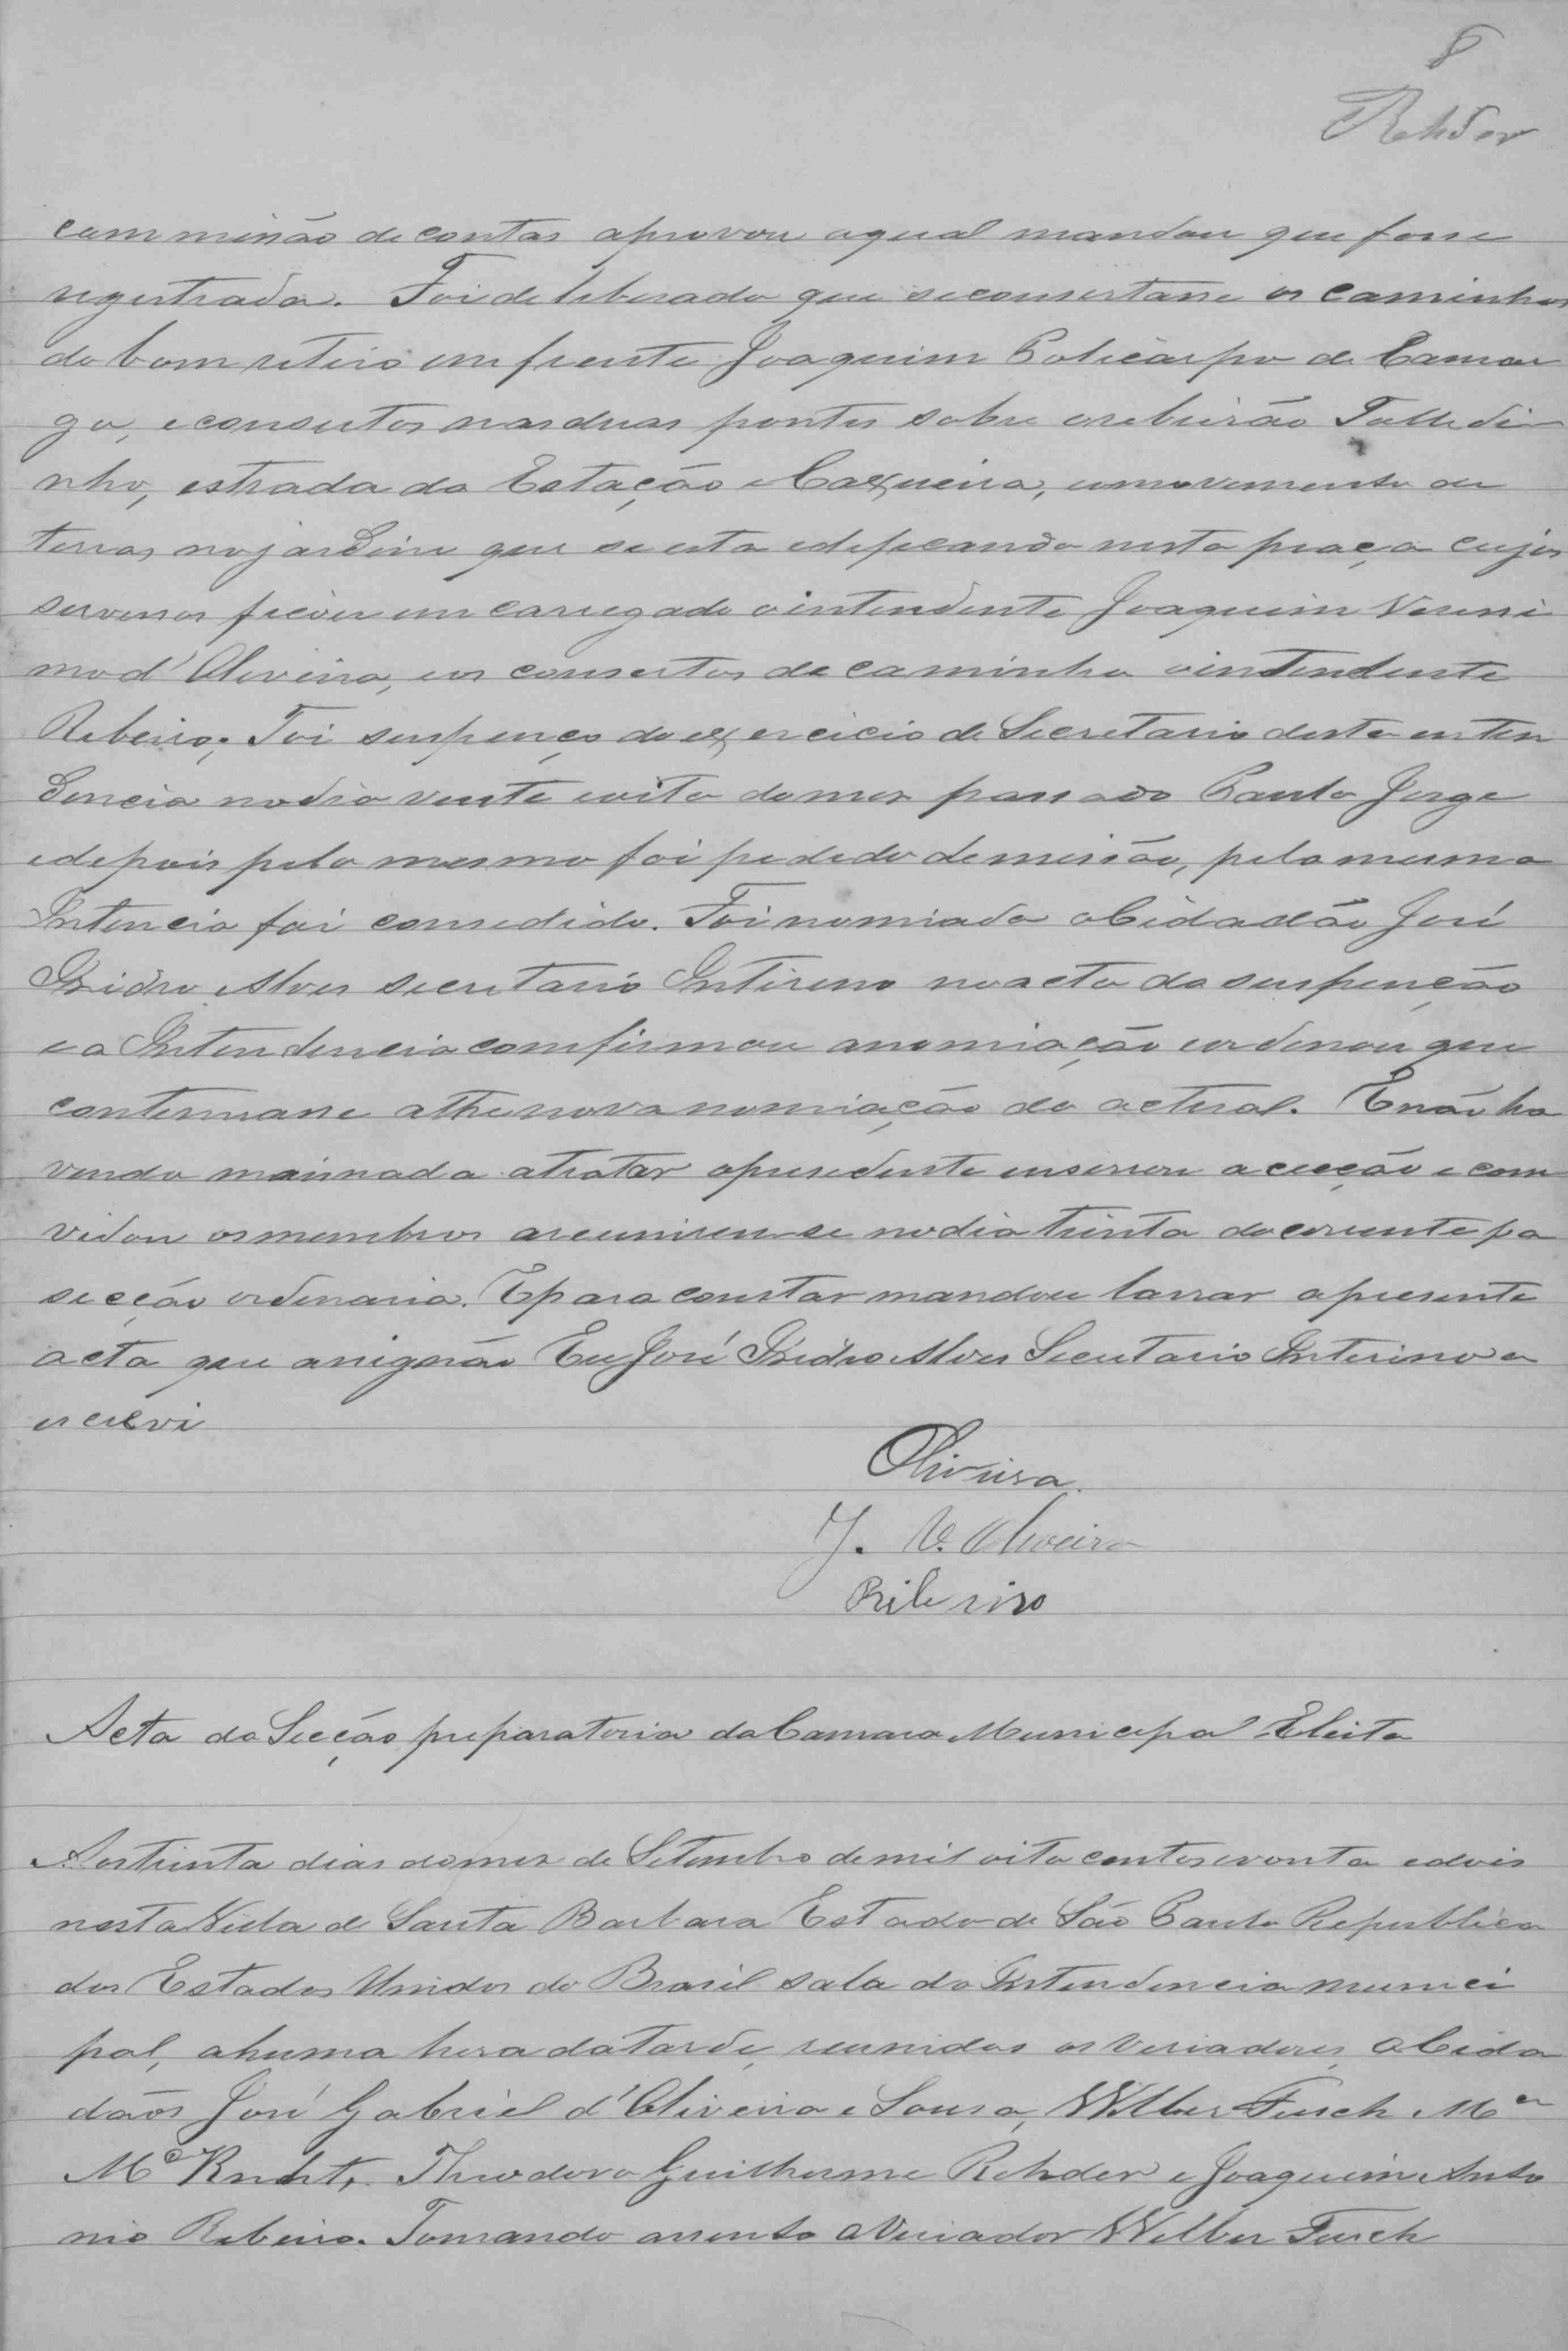 8
Rehder
commissão de contas aprovou aqual mandou que fosse
registrada. Foi deliberado que seconsertasse os caminhos
do bom retiro em frente Joaquim Policarpo de Camar
go, e consertos nas duas pontes sobre oribeirão Tolledi
nho, estrada da Estação e Caxueira, emovemento de
terras no jardim que se esta edeficando nesta praça cujos
servissos ficou encarregado ointendente Joaquim Verissi
mo d'Oliveira, eos consertos de caminho ointendente
Ribeiro; Foi suspenço do exercicio de Secretario desta enten
dencia nodia vinte eoito domes passado Paulo Jorge
edepois pelo mesmo foi pededo demissão, pela mesma
Intencia foi consedido. Foi nomiado oCidadão José
Izidro Alves secretario Intireno noacto da suspenção
e a Intendencia comfirmou anomiação eordenou que
contenuasse athe nova nomiação do actual. E não ha
vendo maisnada atratar opresedente enserrou a cecção e com
vidou osmembros areunirem-se nodia trinta docorrente pa
secção ordenaria. Epara constar mandou lavrar apresente
acta que assignão Eu José Izidro Alves Secretario Interino a
escrevi
Oliveira.
J. V. Oliveira
Ribeiro
Acta da Secção preparatoria da Camara Municepal Eleita
Aostrinta dias domes de Setembro demil oito centosevonta edois
nesta Villa de Santa Barbara Estado de São Paulo Republica
dos Estados Unidos do Brasil sala da Intendencia munici
pal, ahuma hora da tarde, reunidos os Veriadores, oCida
dãos José Gabriel d'Oliveira e Sousa, Wilber Fisch Mc
Mc Knight, Theodoro Guilherme Rehder e Joaquim Anto
nio Ribeiro. Tomando assento oVeriador Wilber Fisch